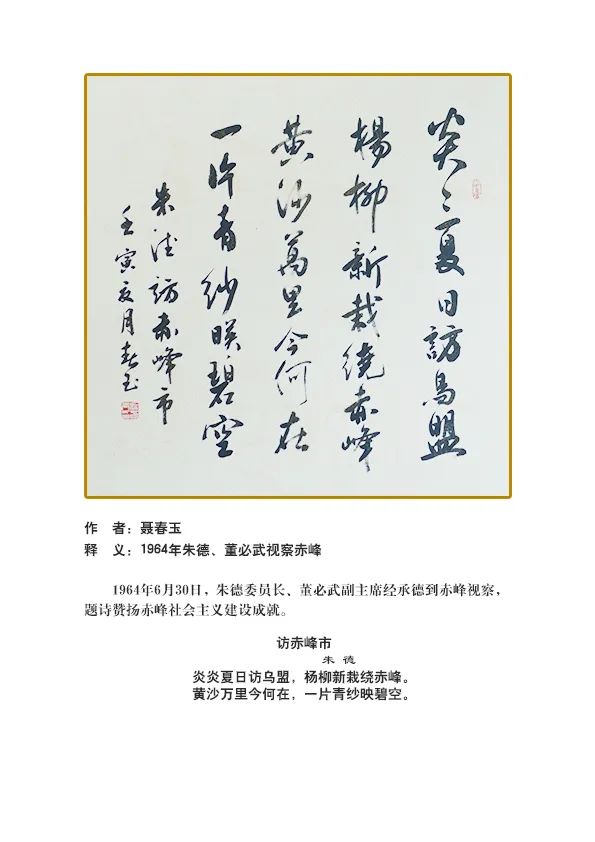 炎〻夏日訪烏盟
楊柳新栽繞赤峰
黃沙萬里今何在
一片青紗映碧空
朱德訪赤峰市
壬寅亥月春玉
作　者：聂春玉
释　义：1964年朱德、董必武视察赤峰
1964年6月30日，朱德委员长、董必武副主席经承德到赤峰视察，
题诗赞扬赤峰社会主义建设成就。
访赤峰市
朱 德
炎炎夏日访乌盟，杨柳新栽绕赤峰。
黄沙万里今何在，一片青纱映碧空。